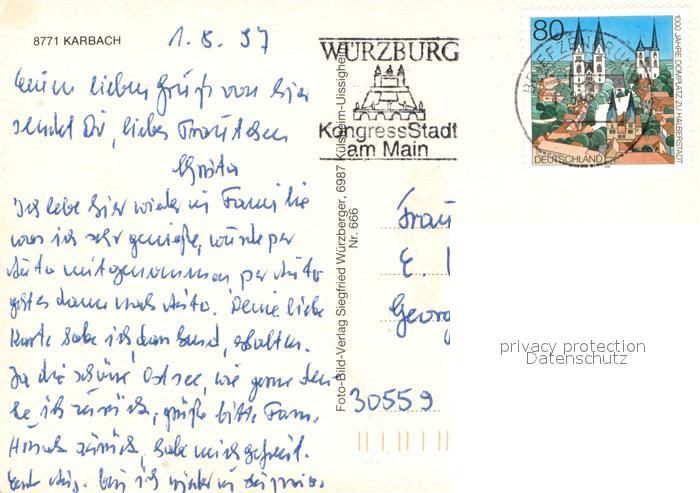 8771 KARBACH
1.8.97
WÜRZBURG
KongressStadt
am Main
80
1000 JAHRE DOMPLATZ ZU HALBERSTADT
DEUTSCHLAND
BRIEFZENTRUM
Einen lieben Gruß von hier
sendet Dir, liebes Trautchen
Ich lebe hier wieder in Familie
was ich sehr genieße, wurde per
Auto mitgenommen per Auto
Deine liebe
Karte habe ich, dankend, erhalten.
Ja die schöne Ostsee, wie gerne den-
ke ich zurück, grüße bitte Fam.
zurück, habe mich gefreut.
bin ich wieder in
Foto-Bild-Verlag Siegfried Würzberger, 6987 Külsheim-Uissigheim
Nr. 666
Frau
E.
Georg
30559
privacy protection
Datenschutz